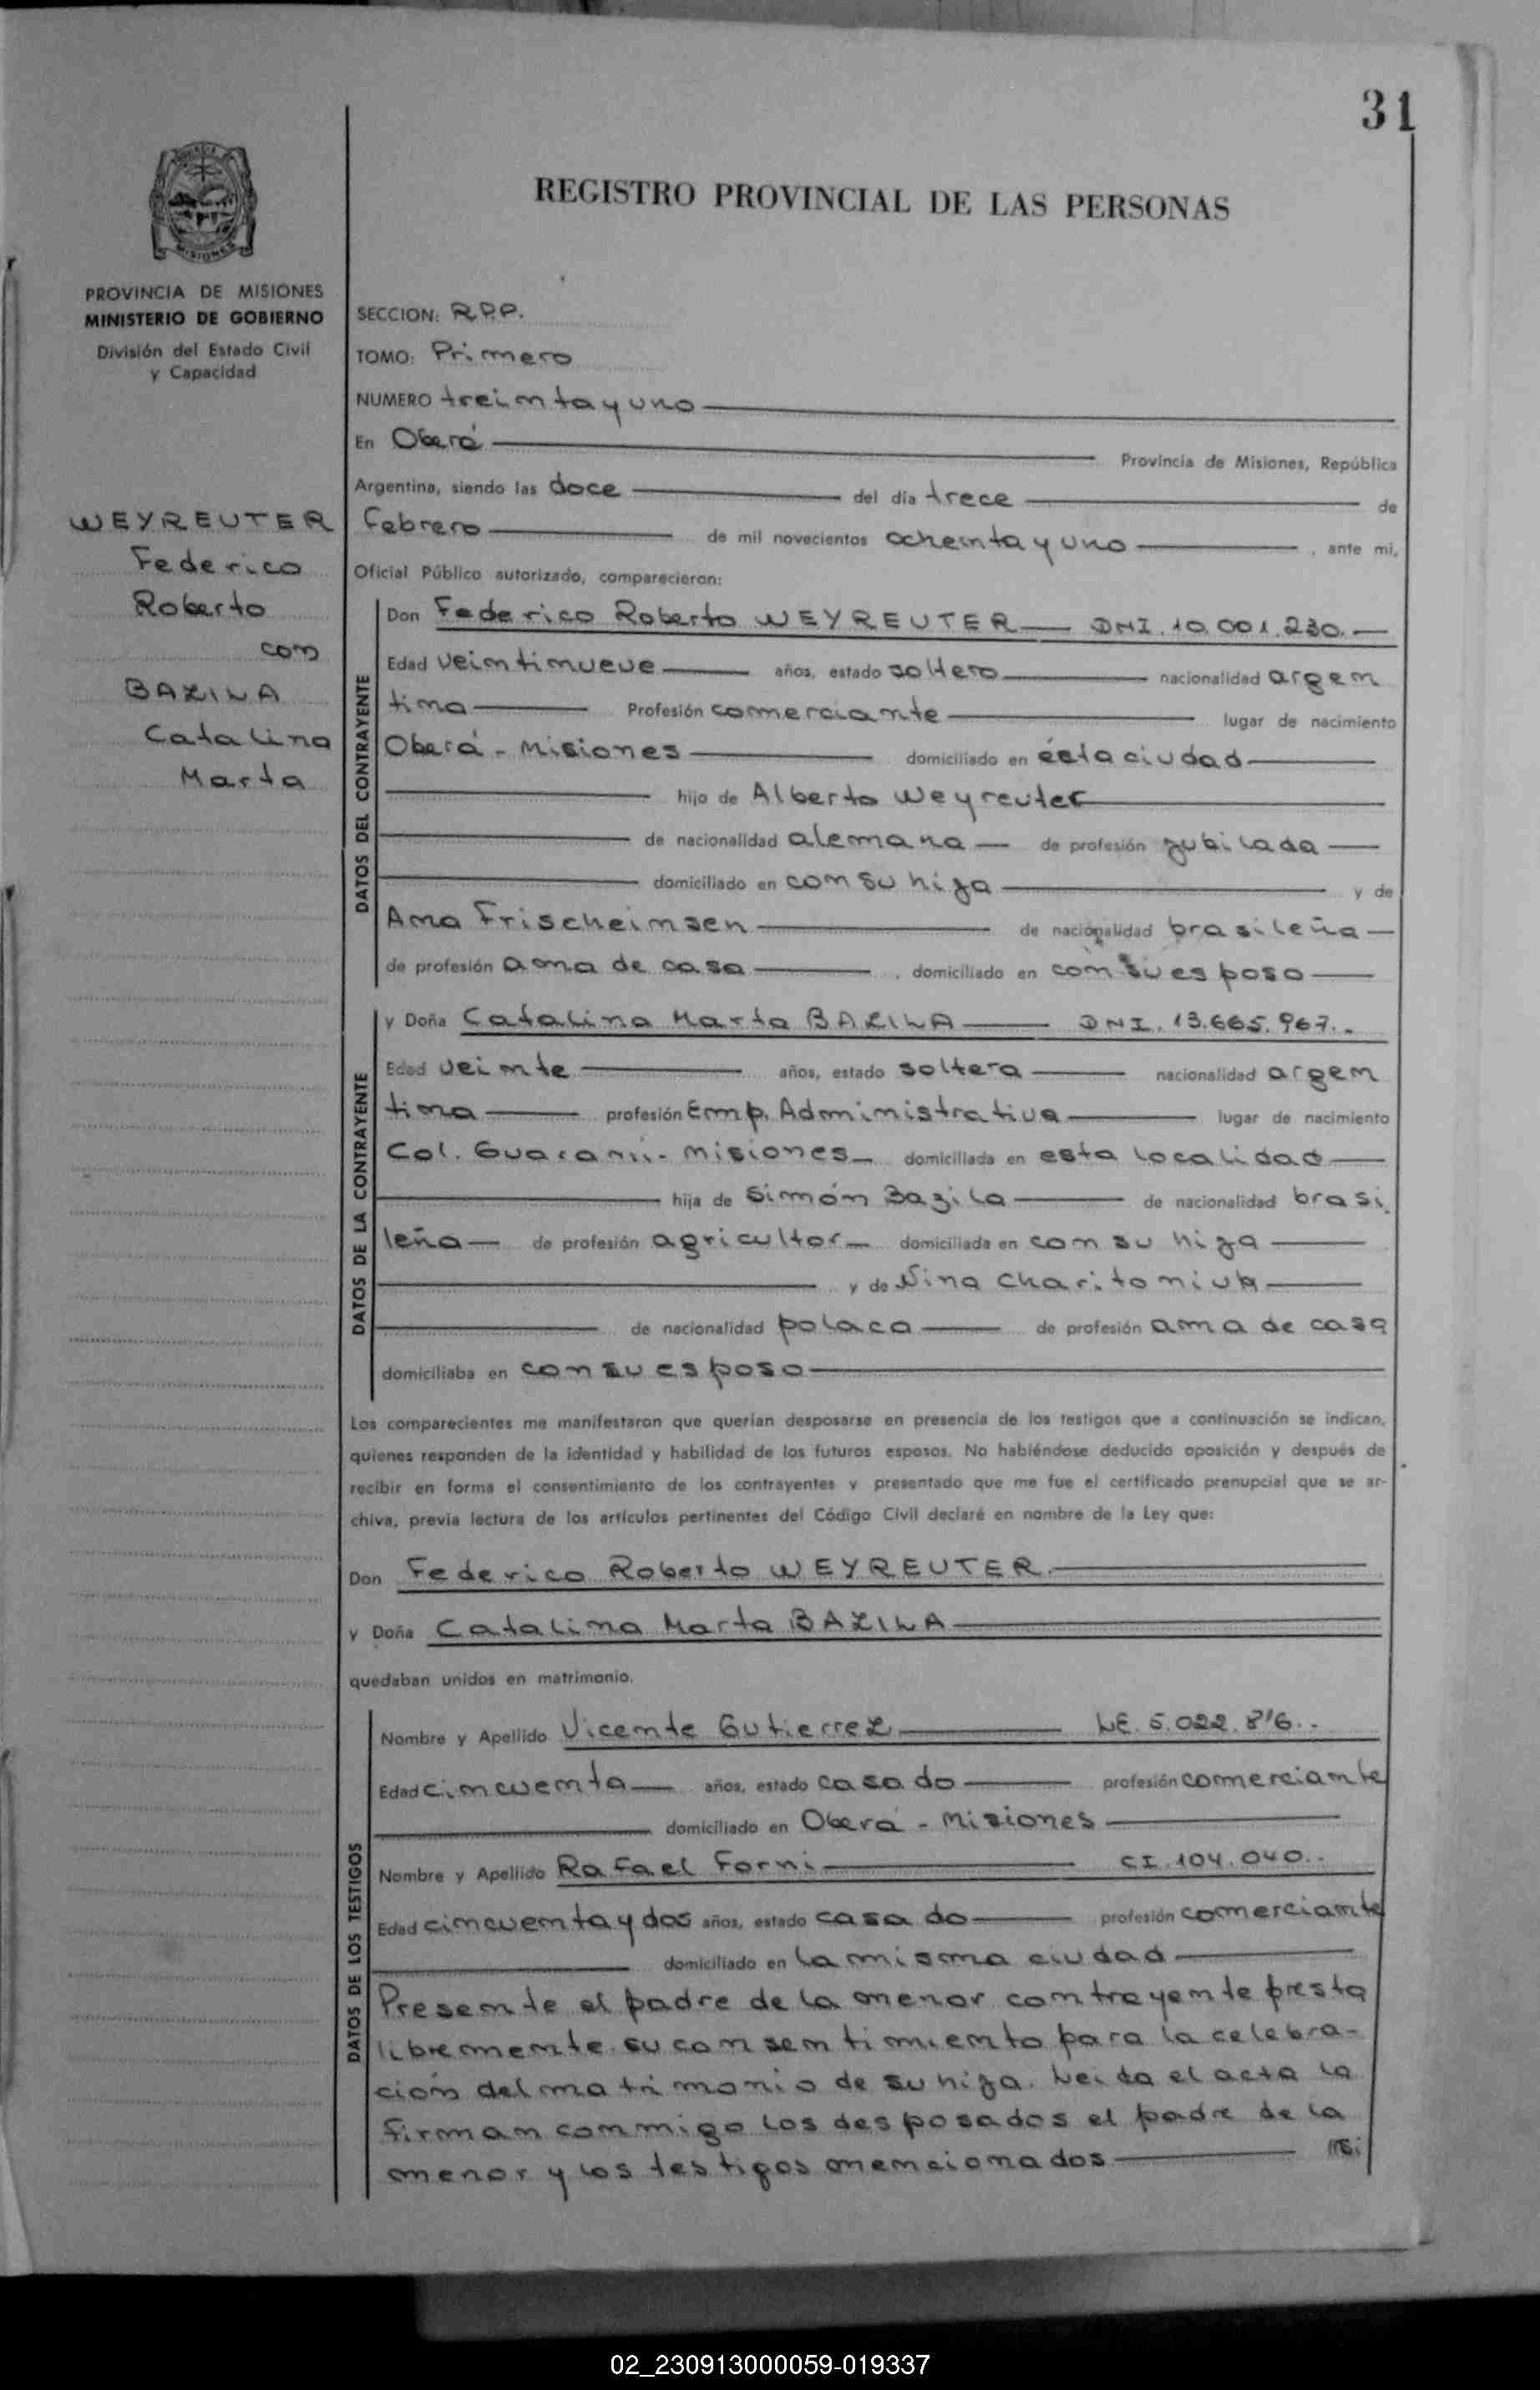 31
REGISTRO PROVINCIAL DE LAS PERSONAS
MISIONES
PROVINCIA DE MISIONES
MINISTERIO DE GOBIERNO
División del Estado Civil
y Capacidad
WEYREUTER
Federico
Roberto
con
BAZILA
Catalina
Marta
SECCION: R.P.P.
TOMO: Primero
NUMERO treinta y uno
En Oberá Provincia de Misiones, República
Argentina, siendo las doce del día trece de
Febrero de mil novecientos ochenta y uno, ante mi,
Oficial Público autorizado, comparecieron:
DATOS DEL CONTRAYENTE
Don Federico Roberto WEYREUTER DNI. 10.001.230.
Edad veintinueve años, estado soltero nacionalidad argen
tina Profesión comerciante lugar de nacimiento
Oberá - Misiones domiciliado en ésta ciudad
hijo de Alberto Weyreuter
de nacionalidad alemana de profesión jubilada
domiciliado en con su hija y de
Ana Frischeinsen de nacionalidad brasileña
de profesión ama de casa, domiciliado en con su esposo
DATOS DE LA CONTRAYENTE
y Doña Catalina Marta BAZILA DNI. 13.665.967..
Edad veinte años, estado soltera nacionalidad argen
tina profesión Emp. Administrativa lugar de nacimiento
Col. Guaraní - Misiones domiciliada en esta localidad
hija de Simón Bazila de nacionalidad brasi
leña de profesión agricultor domiciliada en con su hija
y de Nina Charitoniuk
de nacionalidad polaca de profesión ama de casa
domiciliaba en con su esposo
Los comparecientes me manifestaron que querían desposarse en presencia de los testigos que a continuación se indican,
quienes responden de la identidad y habilidad de los futuros esposos. No habiéndose deducido oposición y después de
recibir en forma el consentimiento de los contrayentes y presentado que me fue el certificado prenupcial que se ar-
chiva, previa lectura de los artículos pertinentes del Código Civil declaré en nombre de la Ley que:
Don Federico Roberto WEYREUTER.
y Doña Catalina Marta BAZILA
quedaban unidos en matrimonio.
DATOS DE LOS TESTIGOS
Nombre y Apellido Vicente Gutierrez LE. 5.022.816..
Edad cincuenta años, estado casado profesión comerciante
domiciliado en Oberá - Misiones
Nombre y Apellido Rafael Forni CI. 104.040..
Edad cincuenta y dos años, estado casado profesión comerciante
domiciliado en la misma ciudad
Presente el padre de la menor contrayente presta
libremente su consentimiento para la celebra-
ción del matrimonio de su hija. Leida el acta la
firman conmigo los desposados el padre de la
menor y los testigos mencionados
02_230913000059-019337